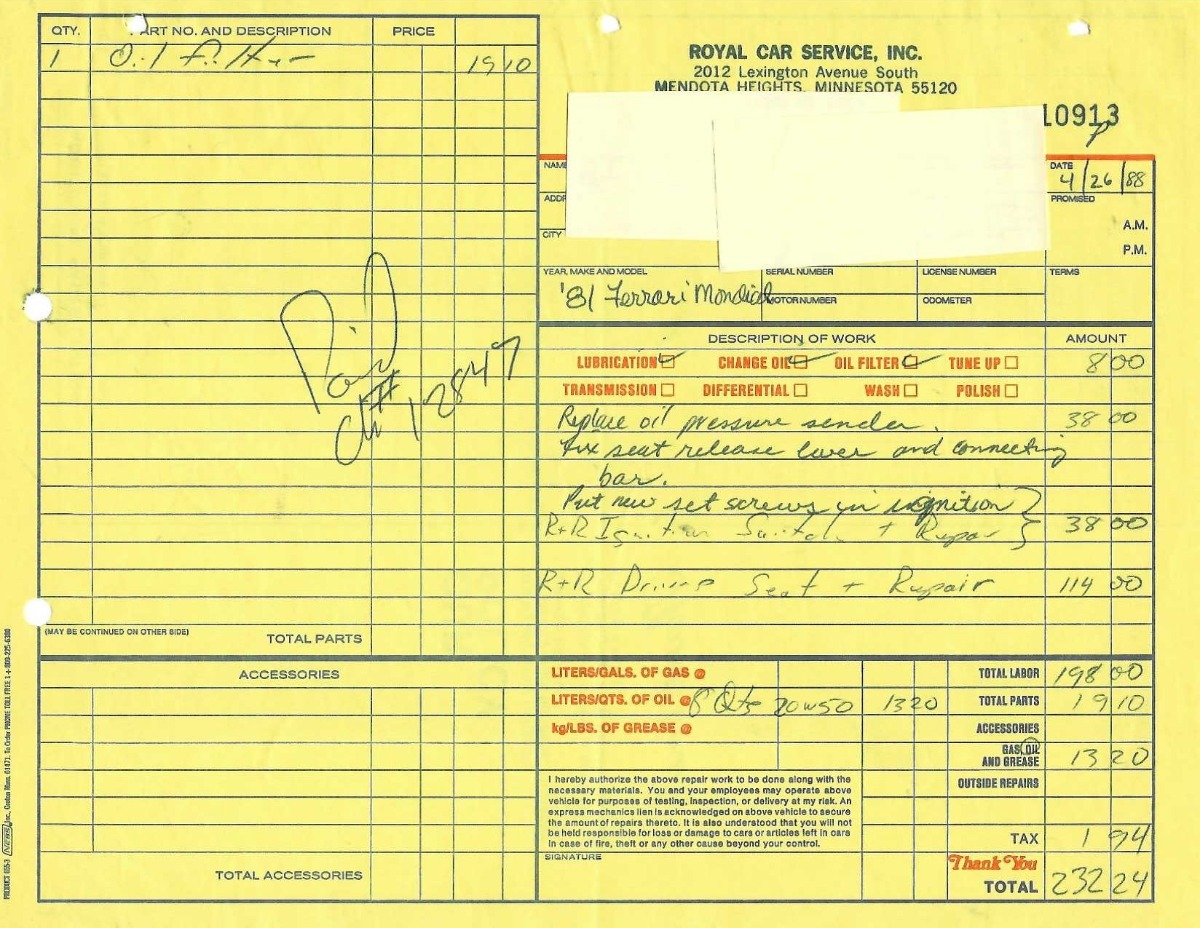 QTY. PART NO. AND DESCRIPTION PRICE
1 Oil filter 19 10
ROYAL CAR SERVICE, INC.
2012 Lexington Avenue South
MENDOTA HEIGHTS, MINNESOTA 55120
10913
NAME
DATE
4/26/88
ADDR
PROMISED
A.M.
CITY
P.M.
YEAR, MAKE AND MODEL SERIAL NUMBER LICENSE NUMBER TERMS
'81 Ferrari Mondial
MOTOR NUMBER ODOMETER
DESCRIPTION OF WORK AMOUNT
LUBRICATION CHANGE OIL OIL FILTER TUNE UP 8 00
TRANSMISSION DIFFERENTIAL WASH POLISH
Replace oil pressure sender. 38 00
Fix seat release lever and connecting
bar.
Put new set screws in ignition
R+R Ignition Switch + Repair 38 00
R+R Drivers Seat + Repair 114 00
Paid
ch# 12847
(MAY BE CONTINUED ON OTHER SIDE) TOTAL PARTS
ACCESSORIES
TOTAL ACCESSORIES
LITERS/GALS. OF GAS @ TOTAL LABOR 198 00
LITERS/QTS. OF OIL @ 8 Qts 20w50 13 20 TOTAL PARTS 19 10
kg/LBS. OF GREASE @ ACCESSORIES
GAS, OIL
AND GREASE 13 20
OUTSIDE REPAIRS
I hereby authorize the above repair work to be done along with the
necessary materials. You and your employees may operate above
vehicle for purposes of testing, inspection, or delivery at my risk. An
express mechanics lien is acknowledged on above vehicle to secure
the amount of repairs thereto. It is also understood that you will not
be held responsible for loss or damage to cars or articles left in cars
in case of fire, theft or any other cause beyond your control.
TAX 1 94
SIGNATURE
Thank You
TOTAL 232 24
PRODUCT 655-3 NEBS Inc., Groton Mass. 01471. To Order PHONE TOLL FREE 1 + 800-225-6380